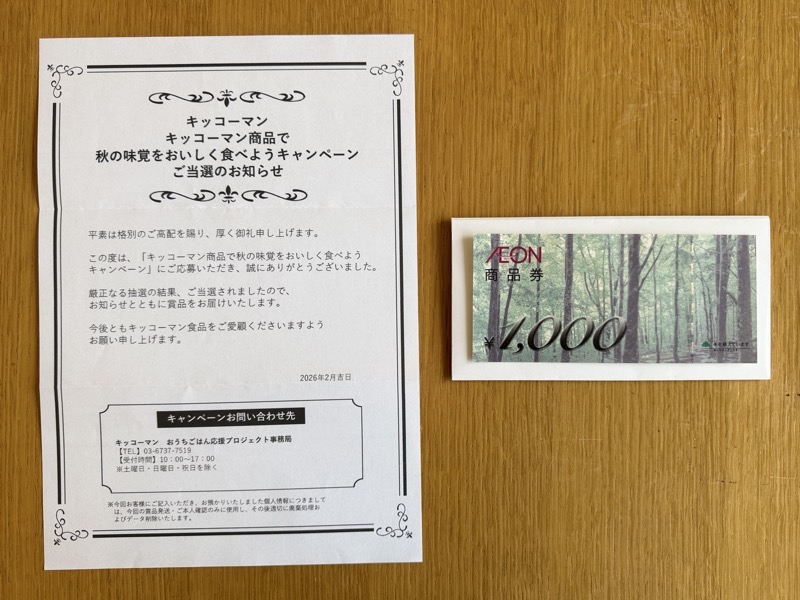 キッコーマン
キッコーマン商品で
秋の味覚をおいしく食べようキャンペーン
ご当選のお知らせ
平素は格別のご高配を賜り、厚く御礼申し上げます。
この度は、「キッコーマン商品で秋の味覚をおいしく食べよう
キャンペーン」にご応募いただき、誠にありがとうございました。
厳正なる抽選の結果、ご当選されましたので、
お知らせとともに賞品をお届けいたします。
今後ともキッコーマン食品をご愛顧くださいますよう
お願い申し上げます。
2026年2月吉日
キャンペーンお問い合わせ先
キッコーマン おうちごはん応援プロジェクト事務局
【TEL】03-6737-7519
【受付時間】10:00～17:00
※土曜日・日曜日・祝日を除く
※今回お客様にご記入いただき、お預かりいたしました個人情報につきまして
は、今回の賞品発送・ご本人確認のみに使用し、その後適切に廃棄処理お
よびデータ削除いたします。
ÆON
商品券
¥1,000
木を植えています